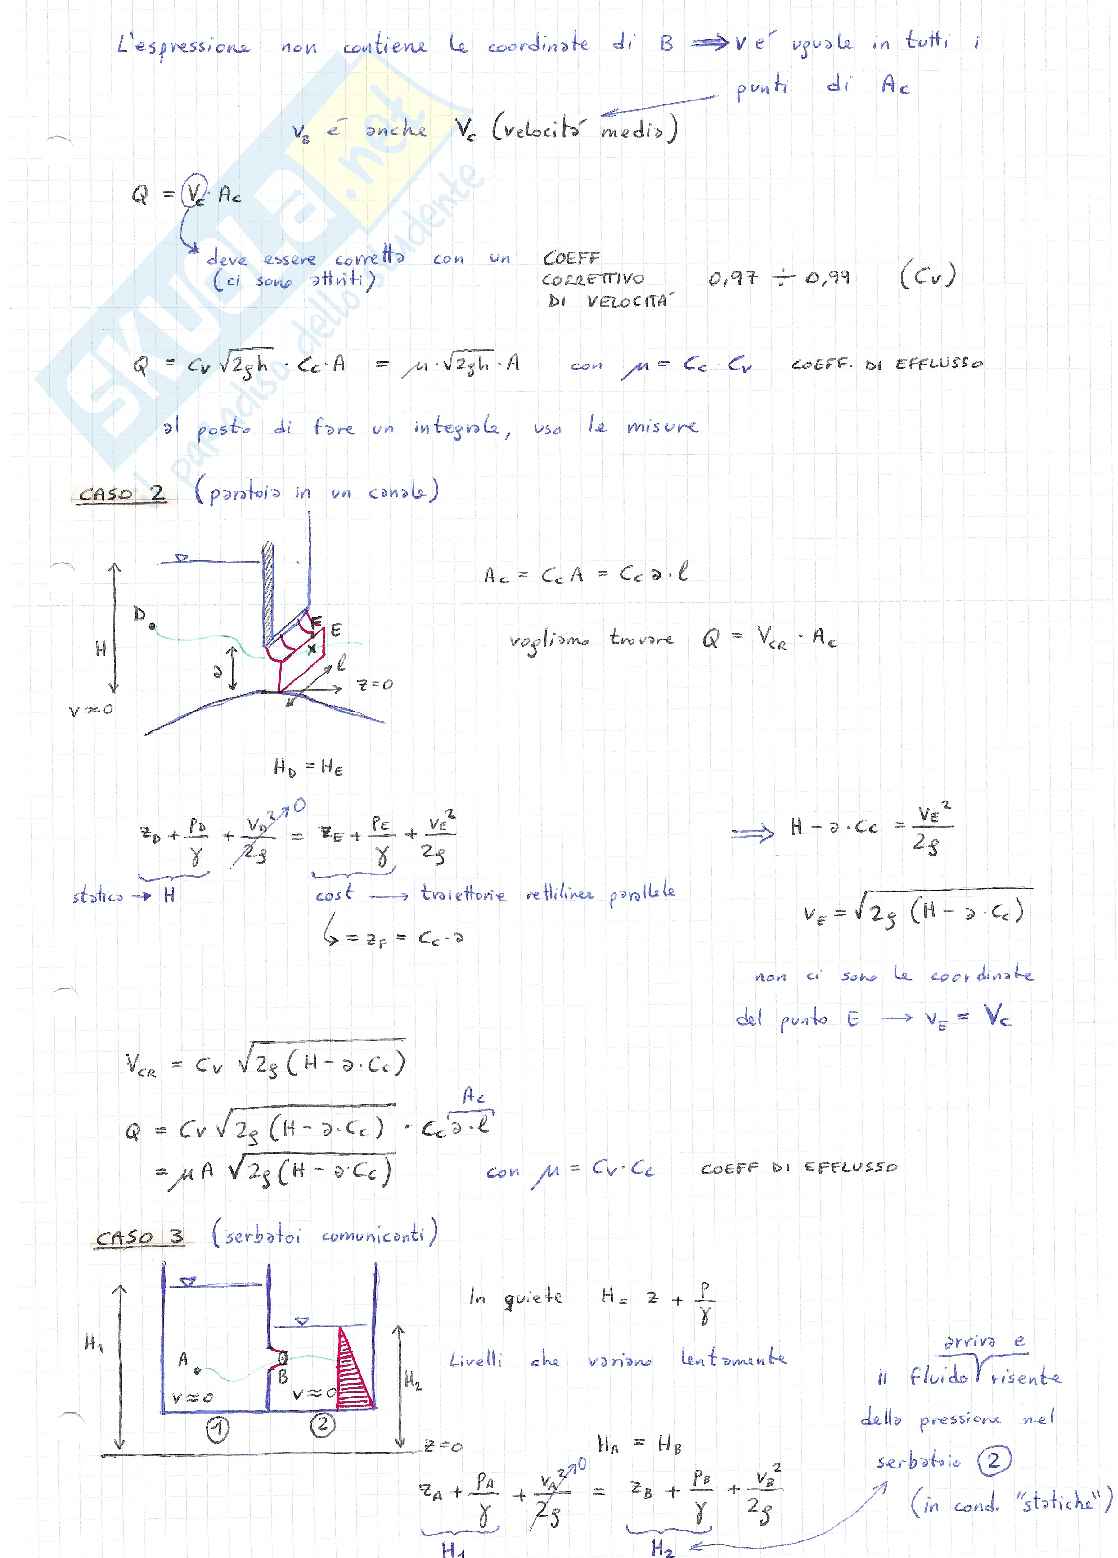 L'espressione non contiene le coordinate di B ⟹ v é uguale in tutti i
punti di Ac
vB é anche Vc (velocitá media)
Q = Vc · Ac
deve essere corretta con un COEFF
(ci sono attriti) CORRETTIVO 0,97 ÷ 0,99 (Cv)
DI VELOCITÁ
Q = Cv √2gh · Cc · A = μ · √2gh · A con μ = Cc · Cv COEFF. DI EFFLUSSO
al posto di fare un integrale, uso le misure
CASO 2 (paratoia in un canale)
Ac = Cc A = Cc a · l
vogliamo trovare Q = VCR · Ac
D
H
a
F
E
l
z=0
v≈0
HD = HE
zD + pD/γ + vD²/2g → 0 = zE + pE/γ + vE²/2g ⟹ H - a · Cc = vE²/2g
statica → H cost → traiettorie rettilinee parallele
↳ = zF = Cc · a
vE = √2g (H - a · Cc)
non ci sono le coordinate
del punto E → vE = Vc
VCR = Cv √2g (H - a · Cc)
Ac
Q = Cv √2g (H - a · Cc) · Cc a · l
= μ A √2g (H - a · Cc) con μ = Cv · Cc COEFF DI EFFLUSSO
CASO 3 (serbatoi comunicanti)
H1
A
B
v≈0
v≈0
H2
1
2
z=0
In quiete H = z + p/γ
Livelli che variano lentamente
arriva e
il fluido risente
della pressione nel
serbatoio 2
(in cond. "statiche")
HA = HB
zA + pA/γ + vA²/2g → 0 = zB + pB/γ + vB²/2g
H1 H2
SKUOLA.net
il paradiso dello studente